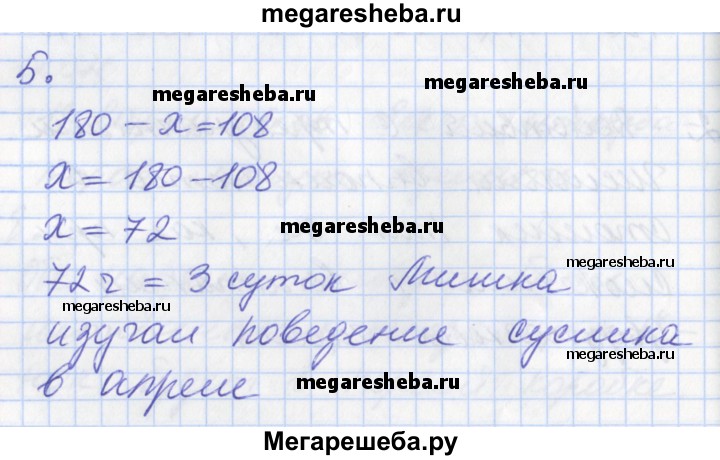 megaresheba.ru
5.
megaresheba.ru
megaresheba.ru
180 - x = 108
x = 180 - 108
x = 72
megaresheba.ru
72 ч = 3 суток Мишка
megaresheba.ru
megaresheba.ru
изучал поведение суслика
megaresheba.ru
в апреле
megaresheba.ru
Мегарешеба.ру